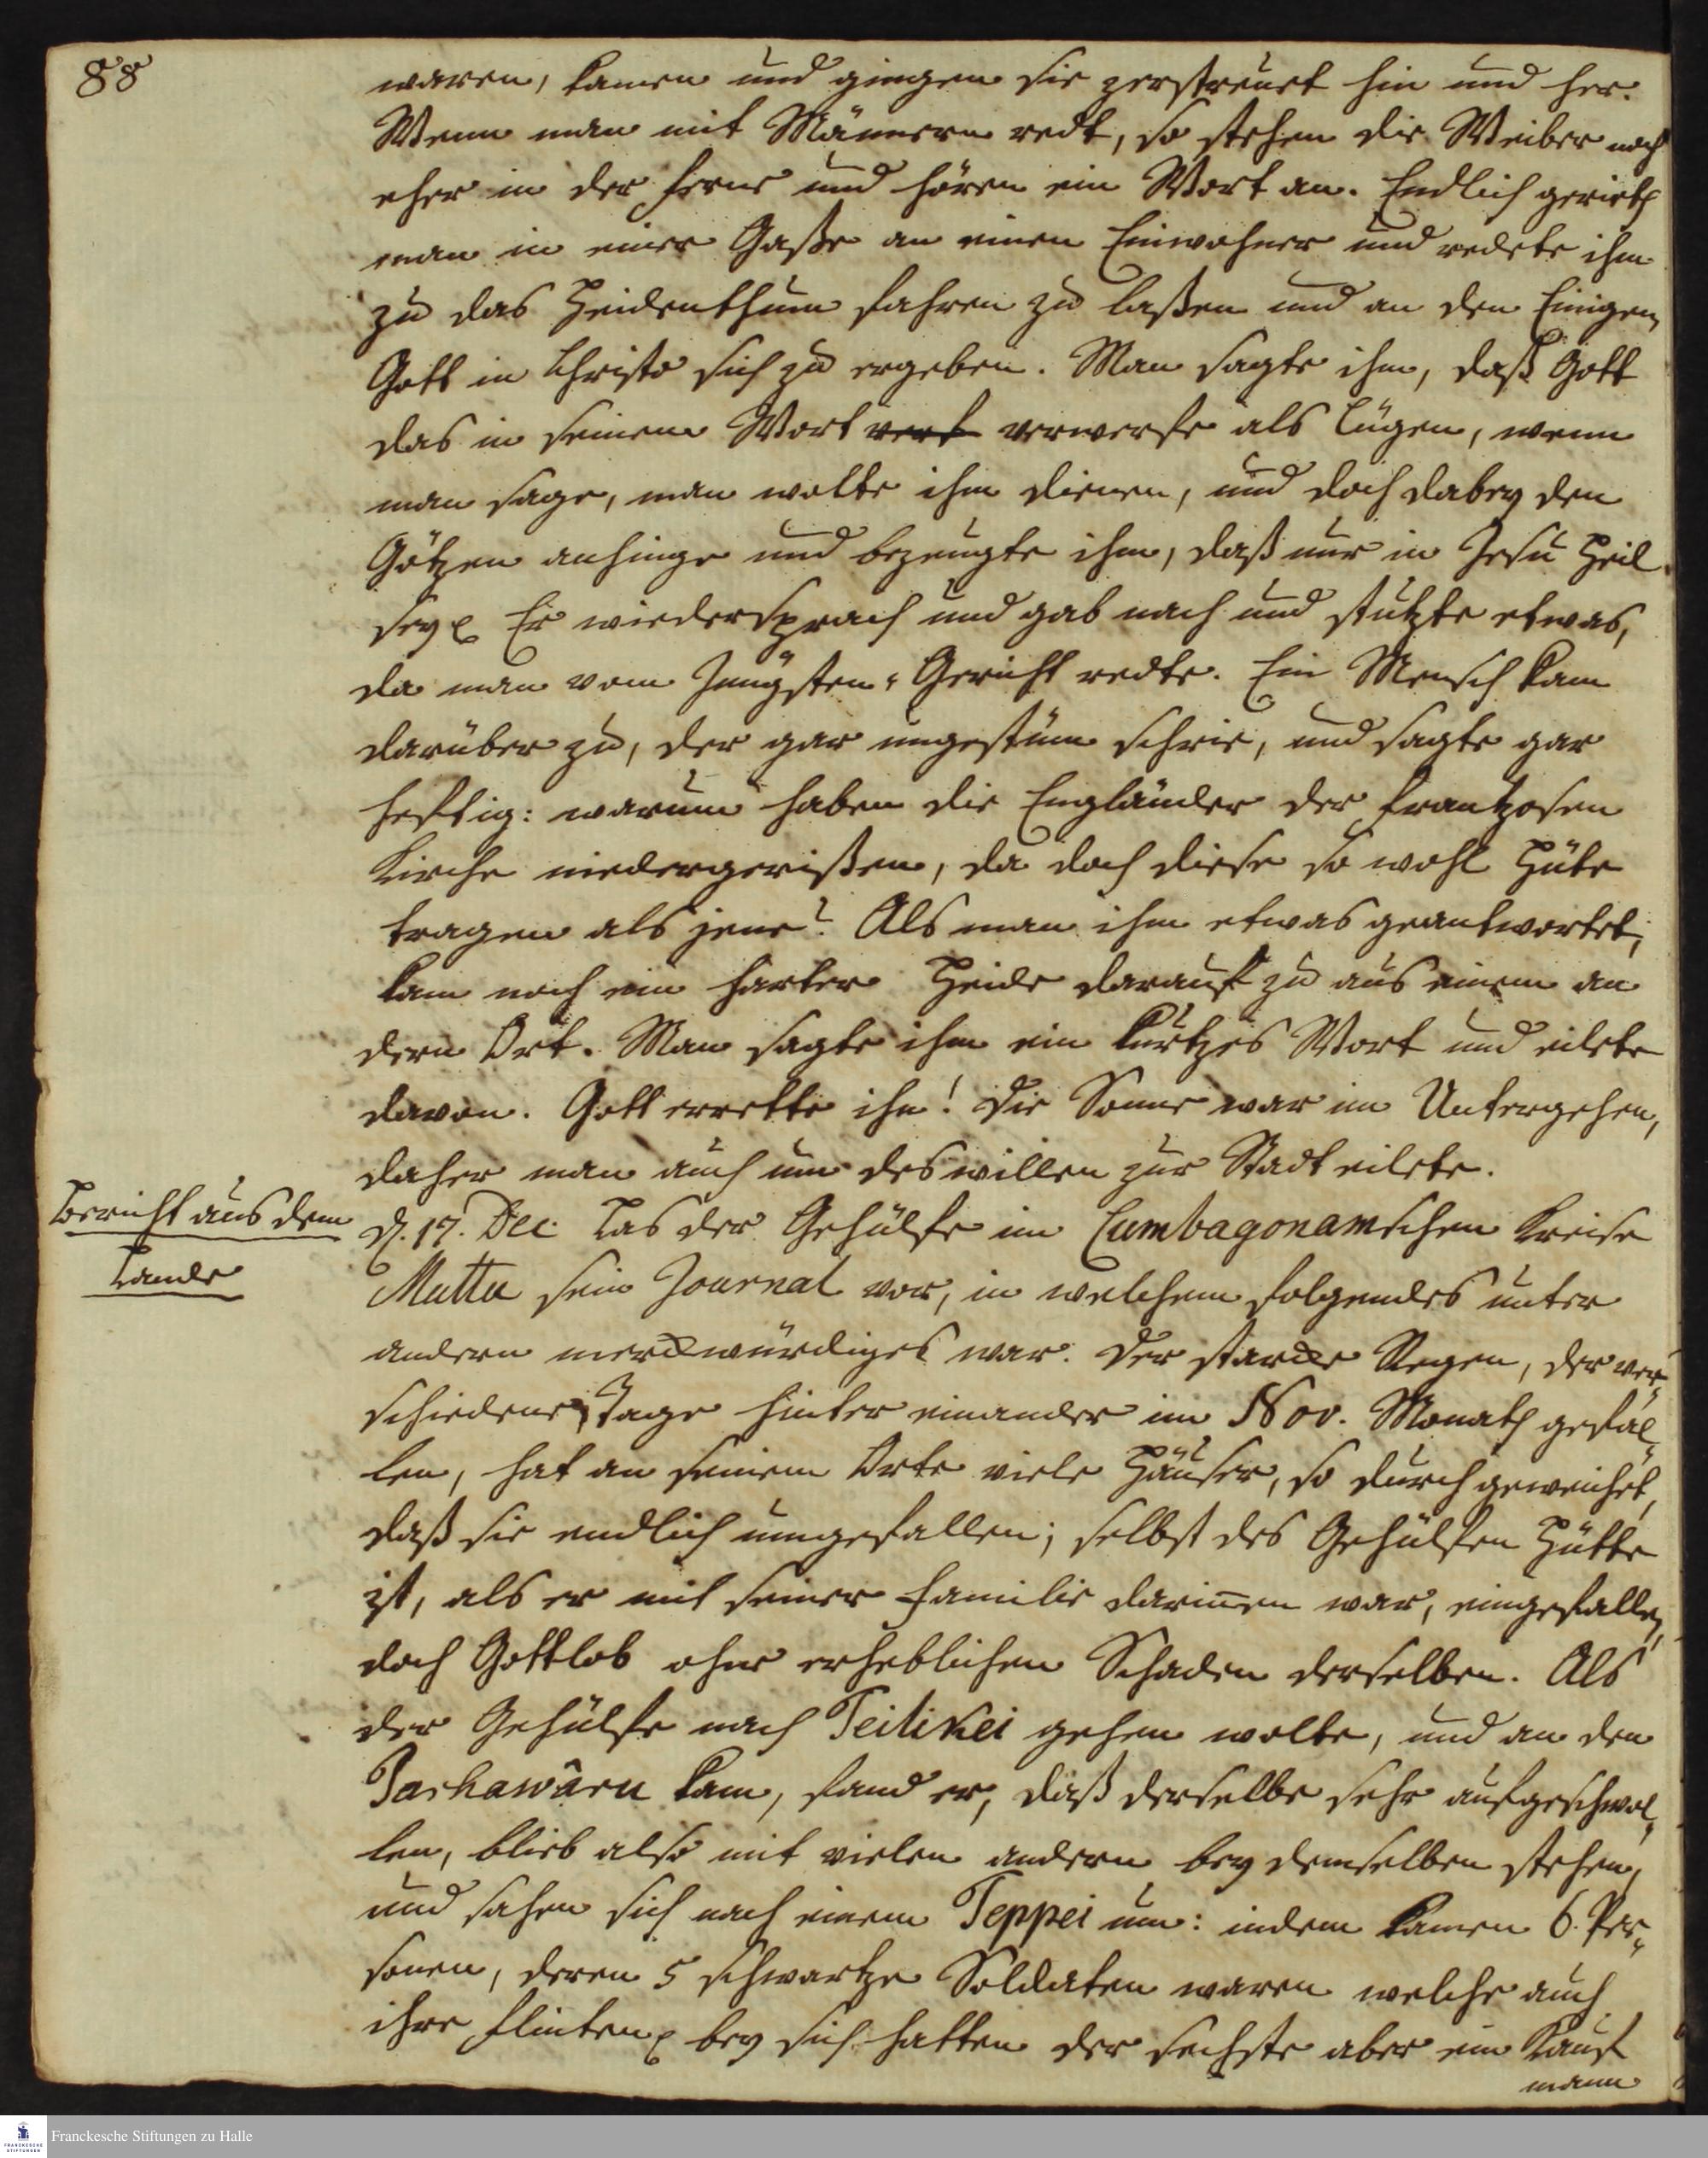 88
waren, kamen und giengen sie zerstreuet hin und her.
Wenn man mit Männern redt, so stehen die Weiber noch
eher in der Ferne und hören ein Wort an. Endlich gerieth
man in einer Gaße an einen Einwohner und redete ihm
zu das Heidenthum fahren zu laßen und an den Einigen
Gott in Christo sich zu ergeben. Man sagte ihm, daß Gott
das in seinem Wort verf verwerfe als Lügen, wenn
man sage, man wolte ihm dienen, und doch dabey den
Götzen anhinge und bezeugte ihm, daß nur in Jesu Heil
sey. Er wiedersprach und gab nach und stutzte etwas,
da man vom Jüngsten-Gericht redte. Ein Mensch kam
darüber zu, der gar ungestüm schrie, und sagte gar
heftig: warum haben die Engländer der Frantzosen
Kirche niedergerißen, da doch diese so wohl Hüte
tragen als jene? Als man ihm etwas geantwortet,
kam noch ein harter Heide darauf zu aus einem an
dern Ort. Man sagte ihm ein kurtzes Wort und eilete
davon. Gott errette ihn! Die Sonne war im Untergehen,
daher man auch um deswillen zur Stadt eilete.
Bericht aus dem
Lande
d. 17. Dec. Las der Gehülfe im Cumbagonamschen Kreise
Muttu sein Journal vor, in welchem folgendes unter
andern merckwürdiges war. Der starcke Regen, der ver„
schiedene Tage hinter einander im Nov. Monath gefal„
len, hat an seinem Orte viele Häuser, so durchgeweichet,
daß sie endlich umgefallen; selbst des Gehülfen Hütte
ist, als er mit seiner Familie darinnen war, eingefallen,
doch Gottlob ohne erheblichen Schaden derselben. Als
der Gehülfe nach Teilikei gehen wolte, und an den
Jarhawâru kam, fand er, daß derselbe sehr aufgeschwol„
len, blieb also mit vielen andern bey demselben stehen,
und sahen sich nach einem Teppei um: indem kamen 6. Per„
sonen, deren 5 schwartze Soldaten waren welche auch
ihre Flinten bey sich hatten der sechste aber ein Kauf
mann
Franckesche Stiftungen zu Halle